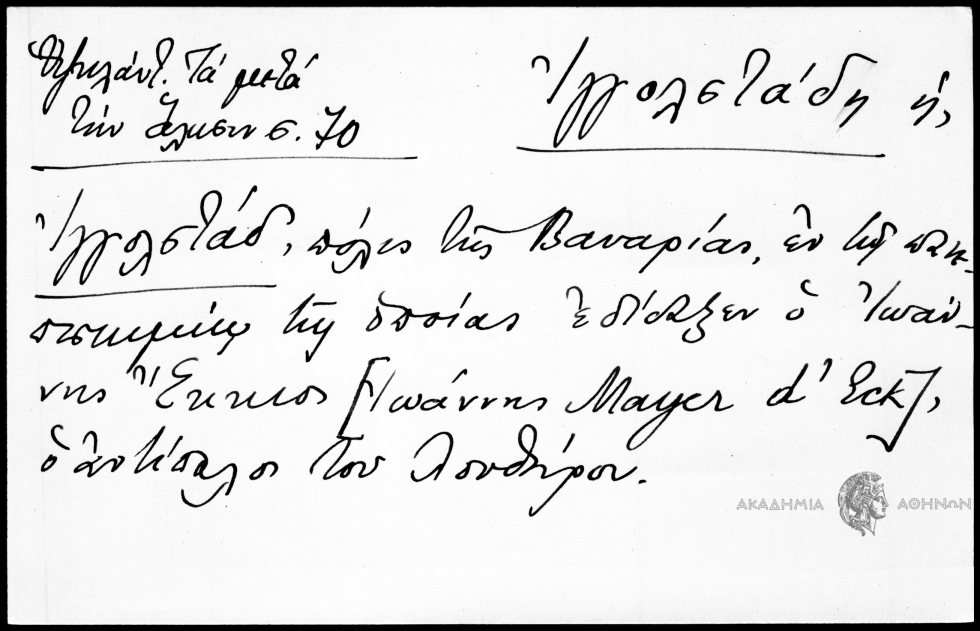 Ὑψηλάντ. Τά μετά
τήν ἅλωσιν σ. 70
Ἰγγολστάδη ἡ,
Ἰγγολστάδ, πόλις τῆς Βαυαρίας, ἐν τῷ πανε-
πιστημίῳ τῆς ὁποίας ἐδίδαξεν ὁ Ἰωάν-
νης Ἔκκιος [Ἰωάννης Mayer d' Eck],
ὁ ἀντίπαλος τοῦ Λουθήρου.
ΑΚΑΔΗΜΙΑ ΑΘΗΝΩΝ